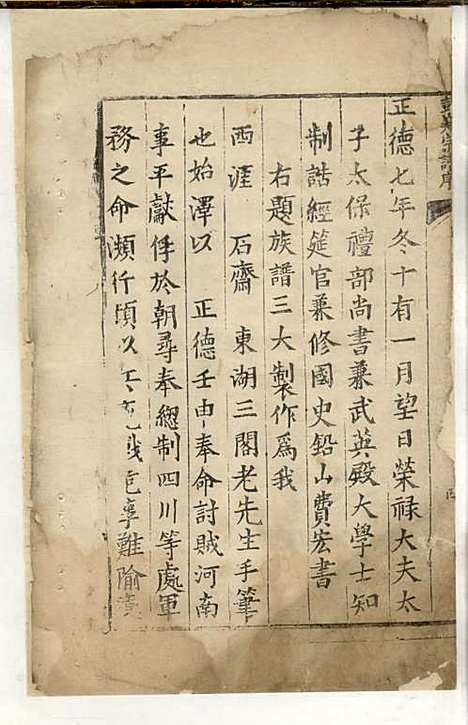 正德七年冬十有一月望日榮禄大夫太
子太保禮部尚書兼武英殿大學士知
制誥經筵官兼修國史鉛山費宏書
右題族譜三大製作爲我
西涯 石齋 東湖三閣老先生手筆
也始澤以 正德壬申奉命討賊河南
事平獻俘於朝尋奉總制四川等處軍
務之命瀕行頃以
事難隃